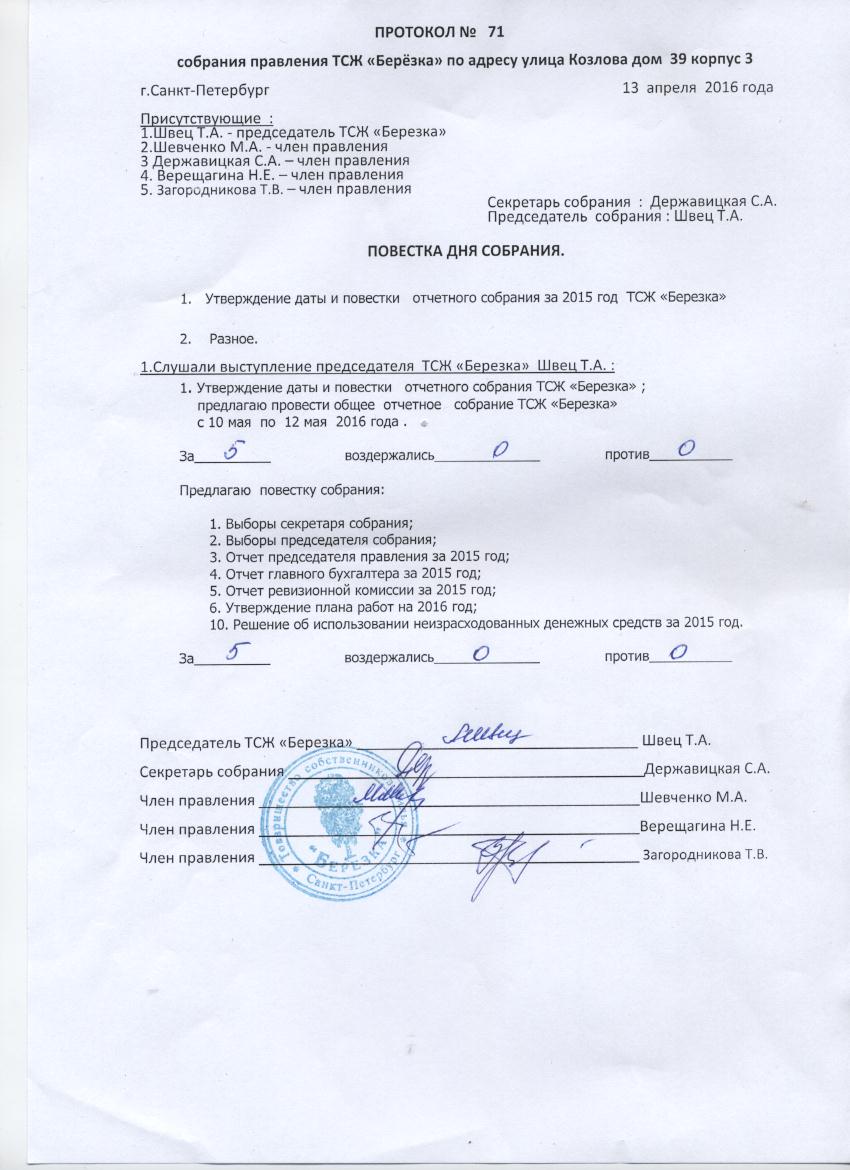 ПРОТОКОЛ № 71
собрания правления ТСЖ «Берёзка» по адресу улица Козлова дом 39 корпус 3
г.Санкт-Петербург 13 апреля 2016 года
Присутствующие :
1.Швец Т.А. - председатель ТСЖ «Березка»
2.Шевченко М.А. - член правления
3 Державицкая С.А. – член правления
4. Верещагина Н.Е. – член правления
5. Загородникова Т.В. – член правления
Секретарь собрания : Державицкая С.А.
Председатель собрания : Швец Т.А.
ПОВЕСТКА ДНЯ СОБРАНИЯ.
1. Утверждение даты и повестки отчетного собрания за 2015 год ТСЖ «Березка»
2. Разное.
1.Слушали выступление председателя ТСЖ «Березка» Швец Т.А. :
1. Утверждение даты и повестки отчетного собрания ТСЖ «Березка» ;
предлагаю провести общее отчетное собрание ТСЖ «Березка»
с 10 мая по 12 мая 2016 года .
За 5 воздержались 0 против 0
Предлагаю повестку собрания:
1. Выборы секретаря собрания;
2. Выборы председателя собрания;
3. Отчет председателя правления за 2015 год;
4. Отчет главного бухгалтера за 2015 год;
5. Отчет ревизионной комиссии за 2015 год;
6. Утверждение плана работ на 2016 год;
10. Решение об использовании неизрасходованных денежных средств за 2015 год.
За 5 воздержались 0 против 0
Председатель ТСЖ «Березка» Швец Т.А.
Секретарь собрания Державицкая С.А.
Член правления Шевченко М.А.
Член правления Верещагина Н.Е.
Член правления Загородникова Т.В.
Товарищество собственников жилья
"БЕРЕЗКА"
Санкт-Петербург